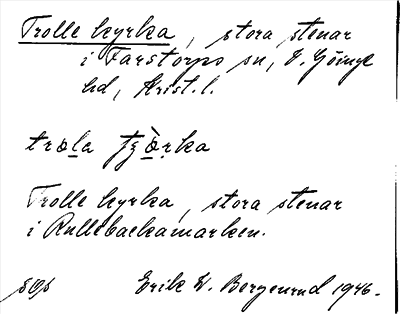 Trolle kyrka, stora stenar
i Farstorps sn, V. Göinge
hd, Krist. l.
Trolle kyrka, stora stenar
i Rullebackamarken.
Erik W. Bergenrud 1946.